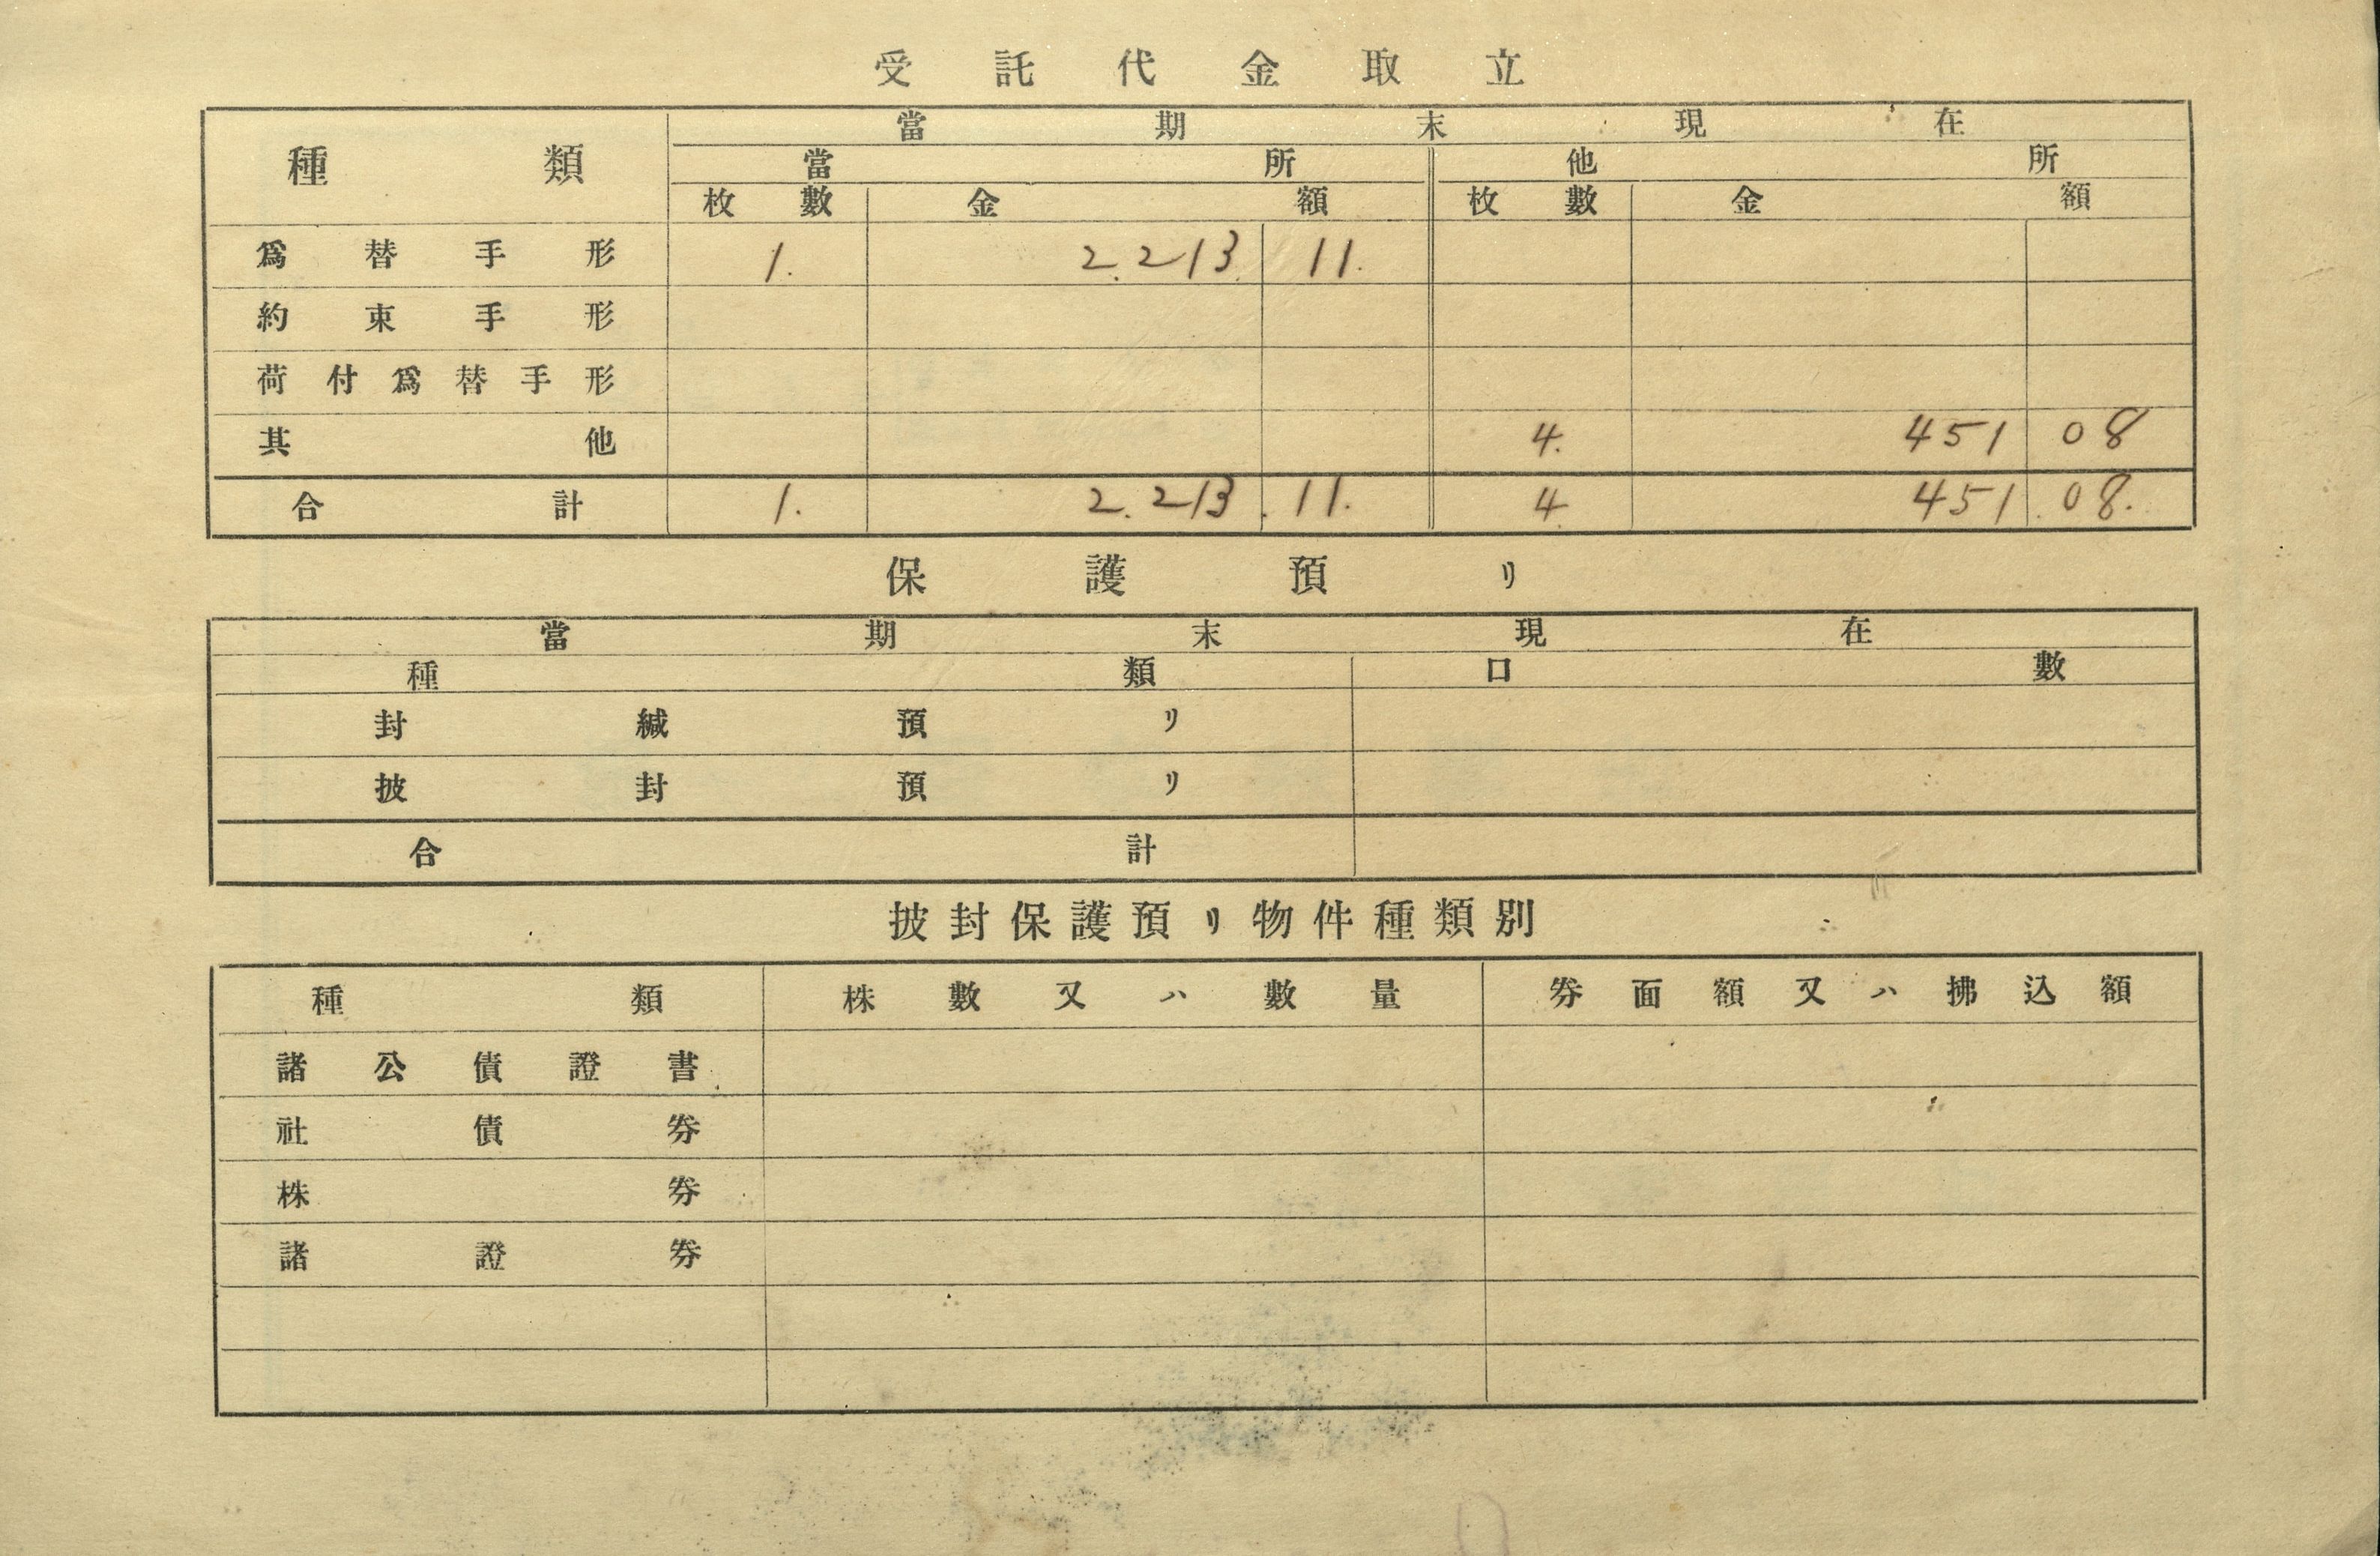 受託代金取立
種類 當期末現在
當所 他所
枚數 金額 枚數 金額
爲替手形 1. 2.213 11.
約束手形
荷付爲替手形
其他 4. 451 08
合計 1. 2.213.11. 4 451.08.
保護預リ
當期末現在
種類 口數
封緘預リ
披封預リ
合計
披封保護預リ物件種類別
種類 株數又ハ數量 券面額又ハ拂込額
諸公債證書
社債券
株券
諸證券